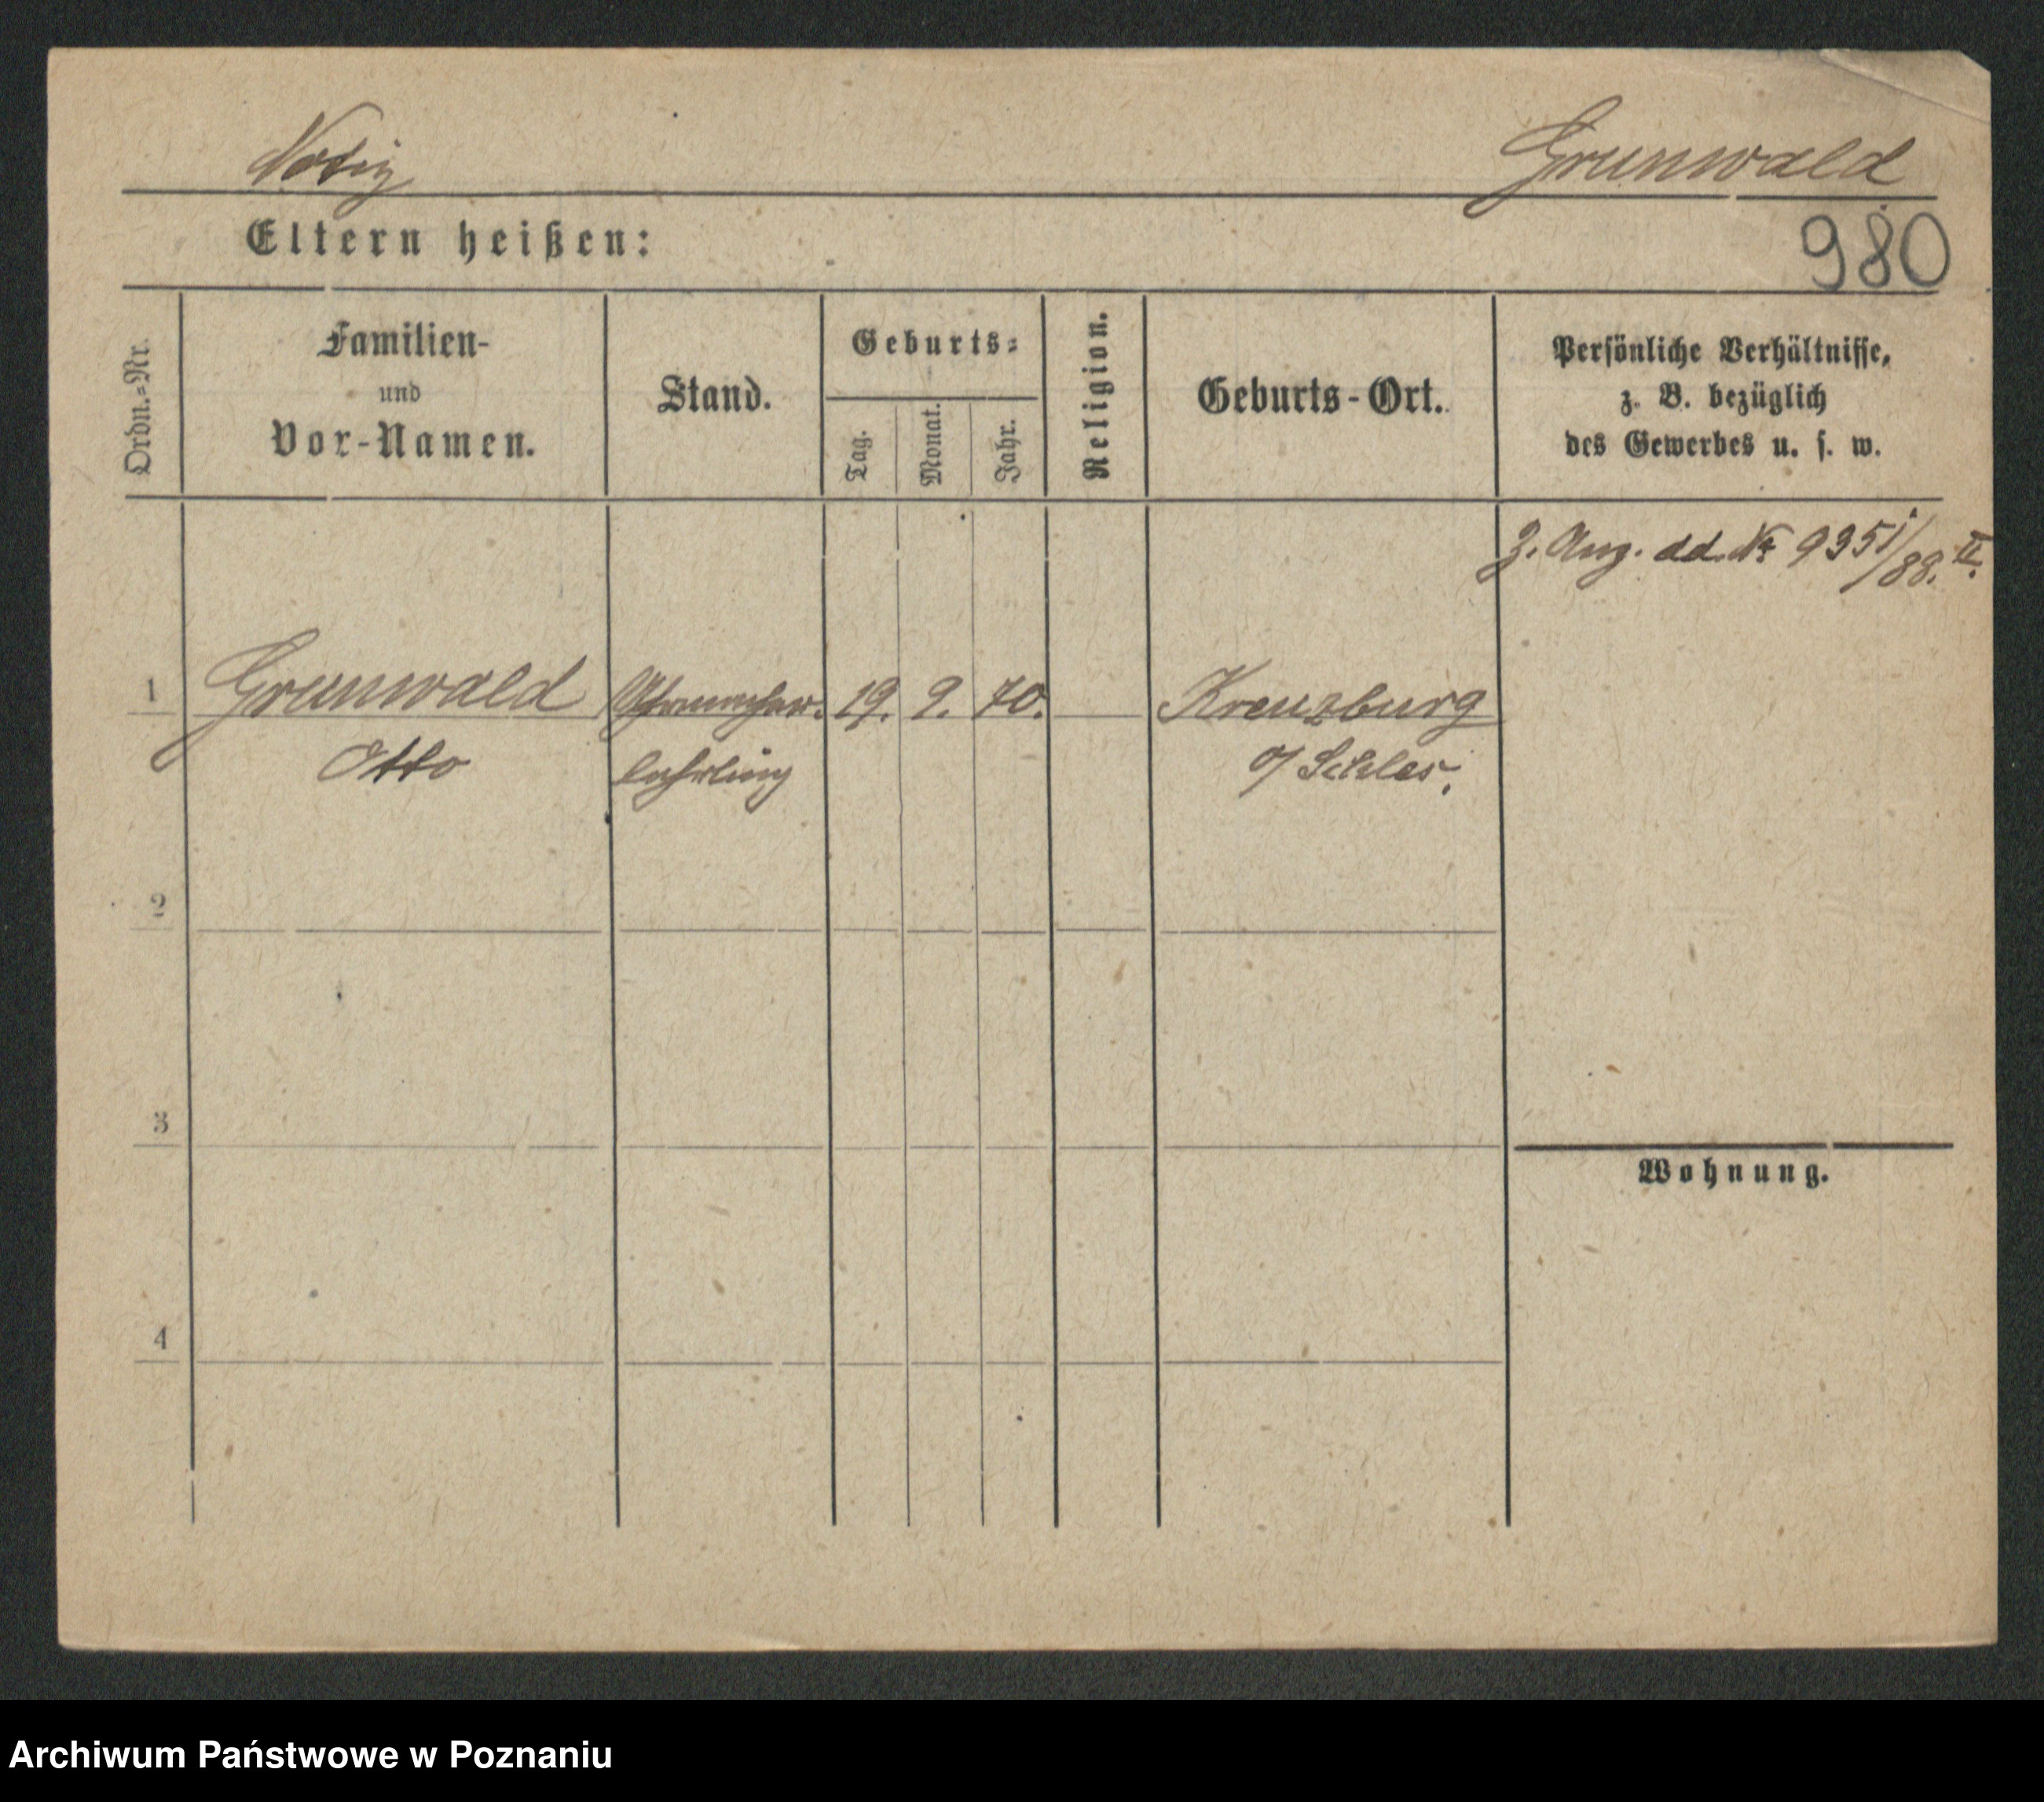 Notiz Grunwald
Eltern heißen: 980
Ordn.=Nr.
Familien-
und
Vor-Namen.
Stand.
Geburts=
Tag. Monat. Jahr.
Religion.
Geburts-Ort.
Persönliche Verhältnisse,
z. B. bezüglich
des Gewerbes u. s. w.
z. Ang. dd. No 935 /88. II.
1 Grunwald Uhrmacher- 19. 9. 70. Kreuzburg
Otto lehrling o/ Schles.
2
3
Wohnung.
4
Archiwum Państwowe w Poznaniu